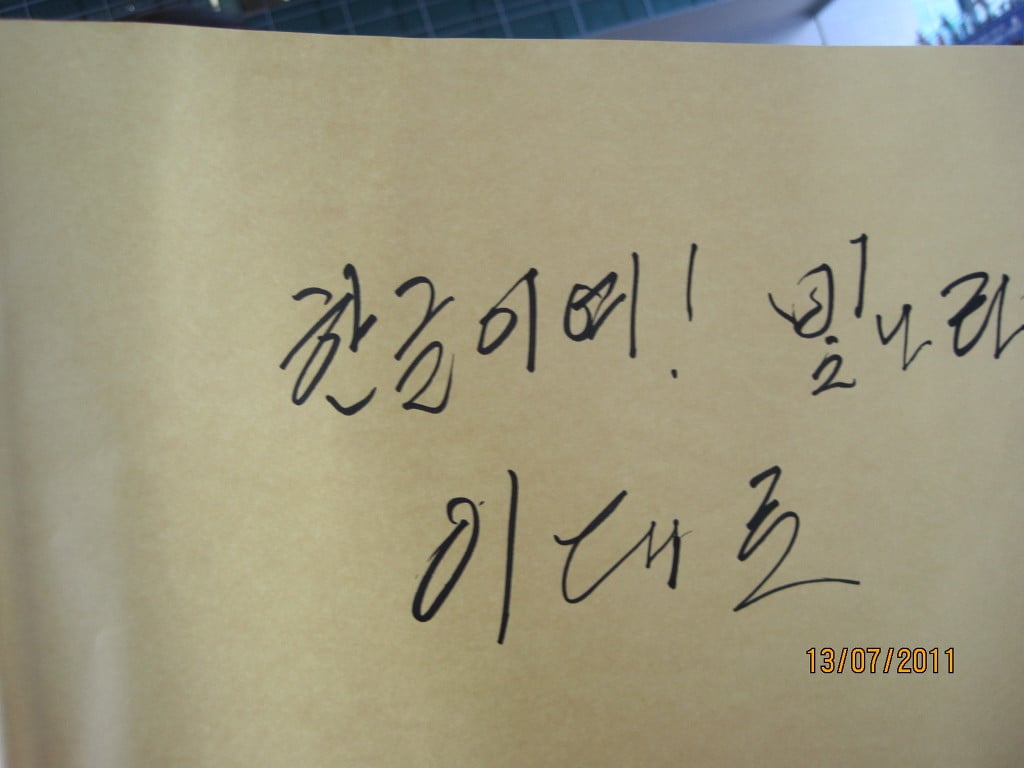 한글이여! 빛나라
이대로
13/07/2011